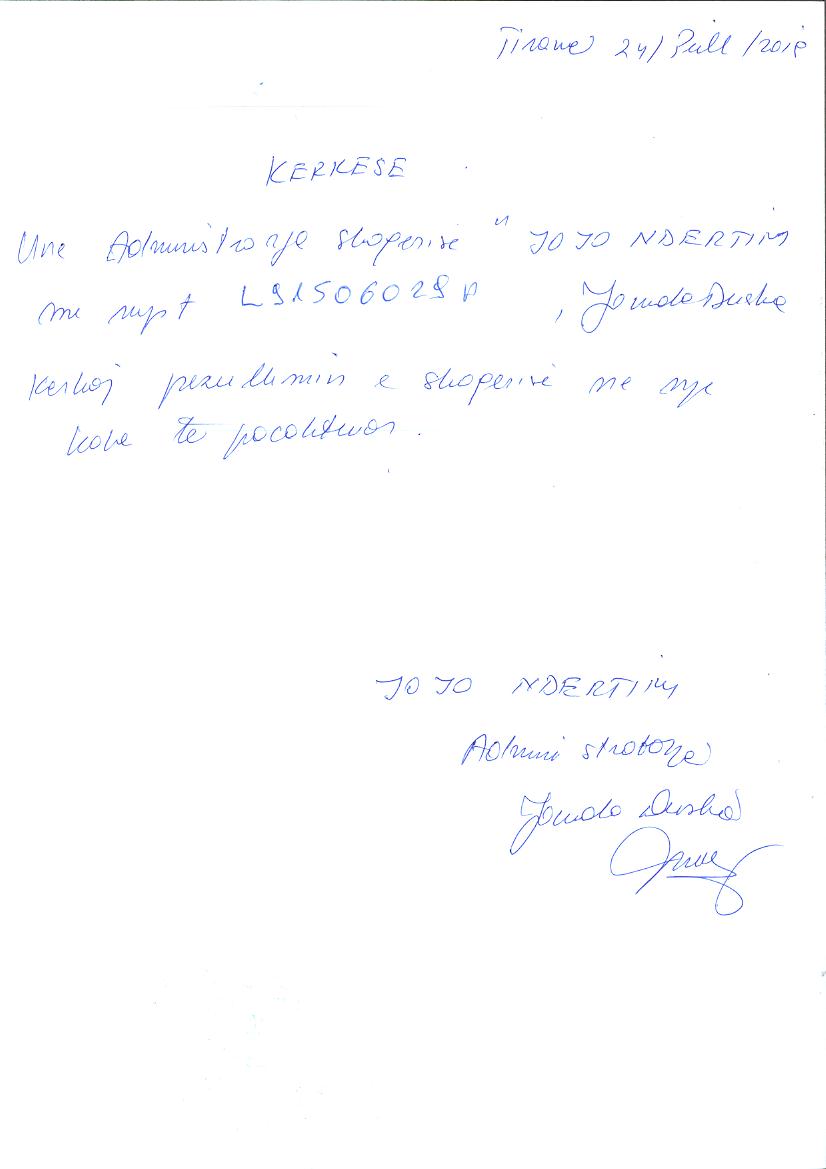 Tirane 24/Prill/2019
KERKESE
Une Administratorja shoqerise " JOJO NDERTIM
me nipt L91506029A , Jonida Duska
kerkoj pezullimin e shoqerise ne nje
kohe te pacaktuar.
JOJO NDERTIM
Administratorja
Jonida Duska